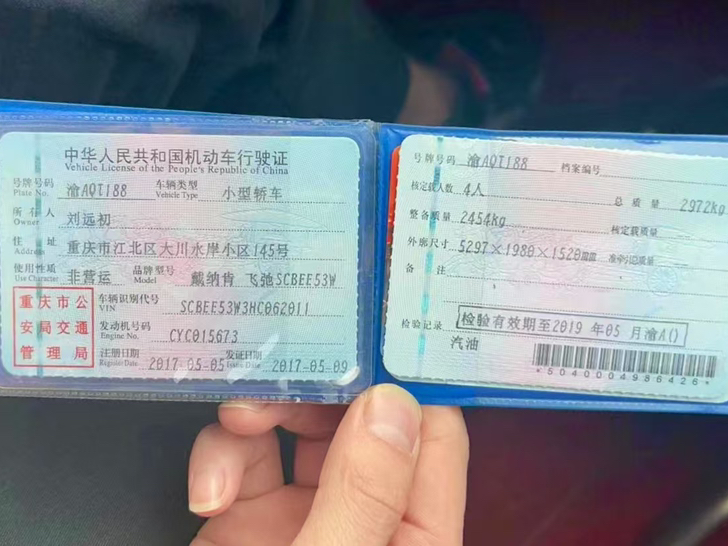 中华人民共和国机动车行驶证
Vehicle License of the People's Republic of China
号牌号码 渝AQT188 车辆类型 小型轿车
Plate No. Vehicle Type
所有人 刘远初
Owner
住址 重庆市江北区大川水岸小区145号
Address
使用性质 非营运 品牌型号 戴纳肯 飞弛SCBEE53W
Use Character Model
重庆市公
安局交通
管理局
车辆识别代号 SCBEE53W3HC062011
VIN
发动机号码 CYC015673
Engine No.
注册日期 2017-05-05 发证日期 2017-05-09
Register Date Issue Date
号牌号码 渝AQT188 档案编号
核定载人数 4人 总质量 2972kg
整备质量 2454kg 核定载质量
外廓尺寸 5297×1980×1520mm 准牵引总质量
备注
检验记录 检验有效期至2019年05月渝A()
汽油
*5040004986426*